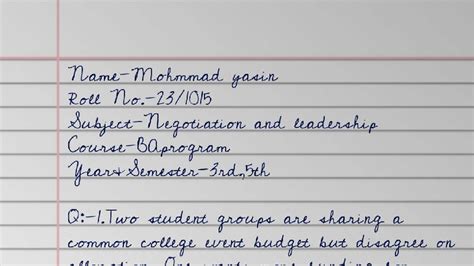 Name-Mohmmad yasin
Roll No.-23/1015
Subject-Negotiation and leadership
Course-BAprogram
Year& Semester-3rd,5th
Q:-1.Two student groups are sharing a
common college event budget but disagree on